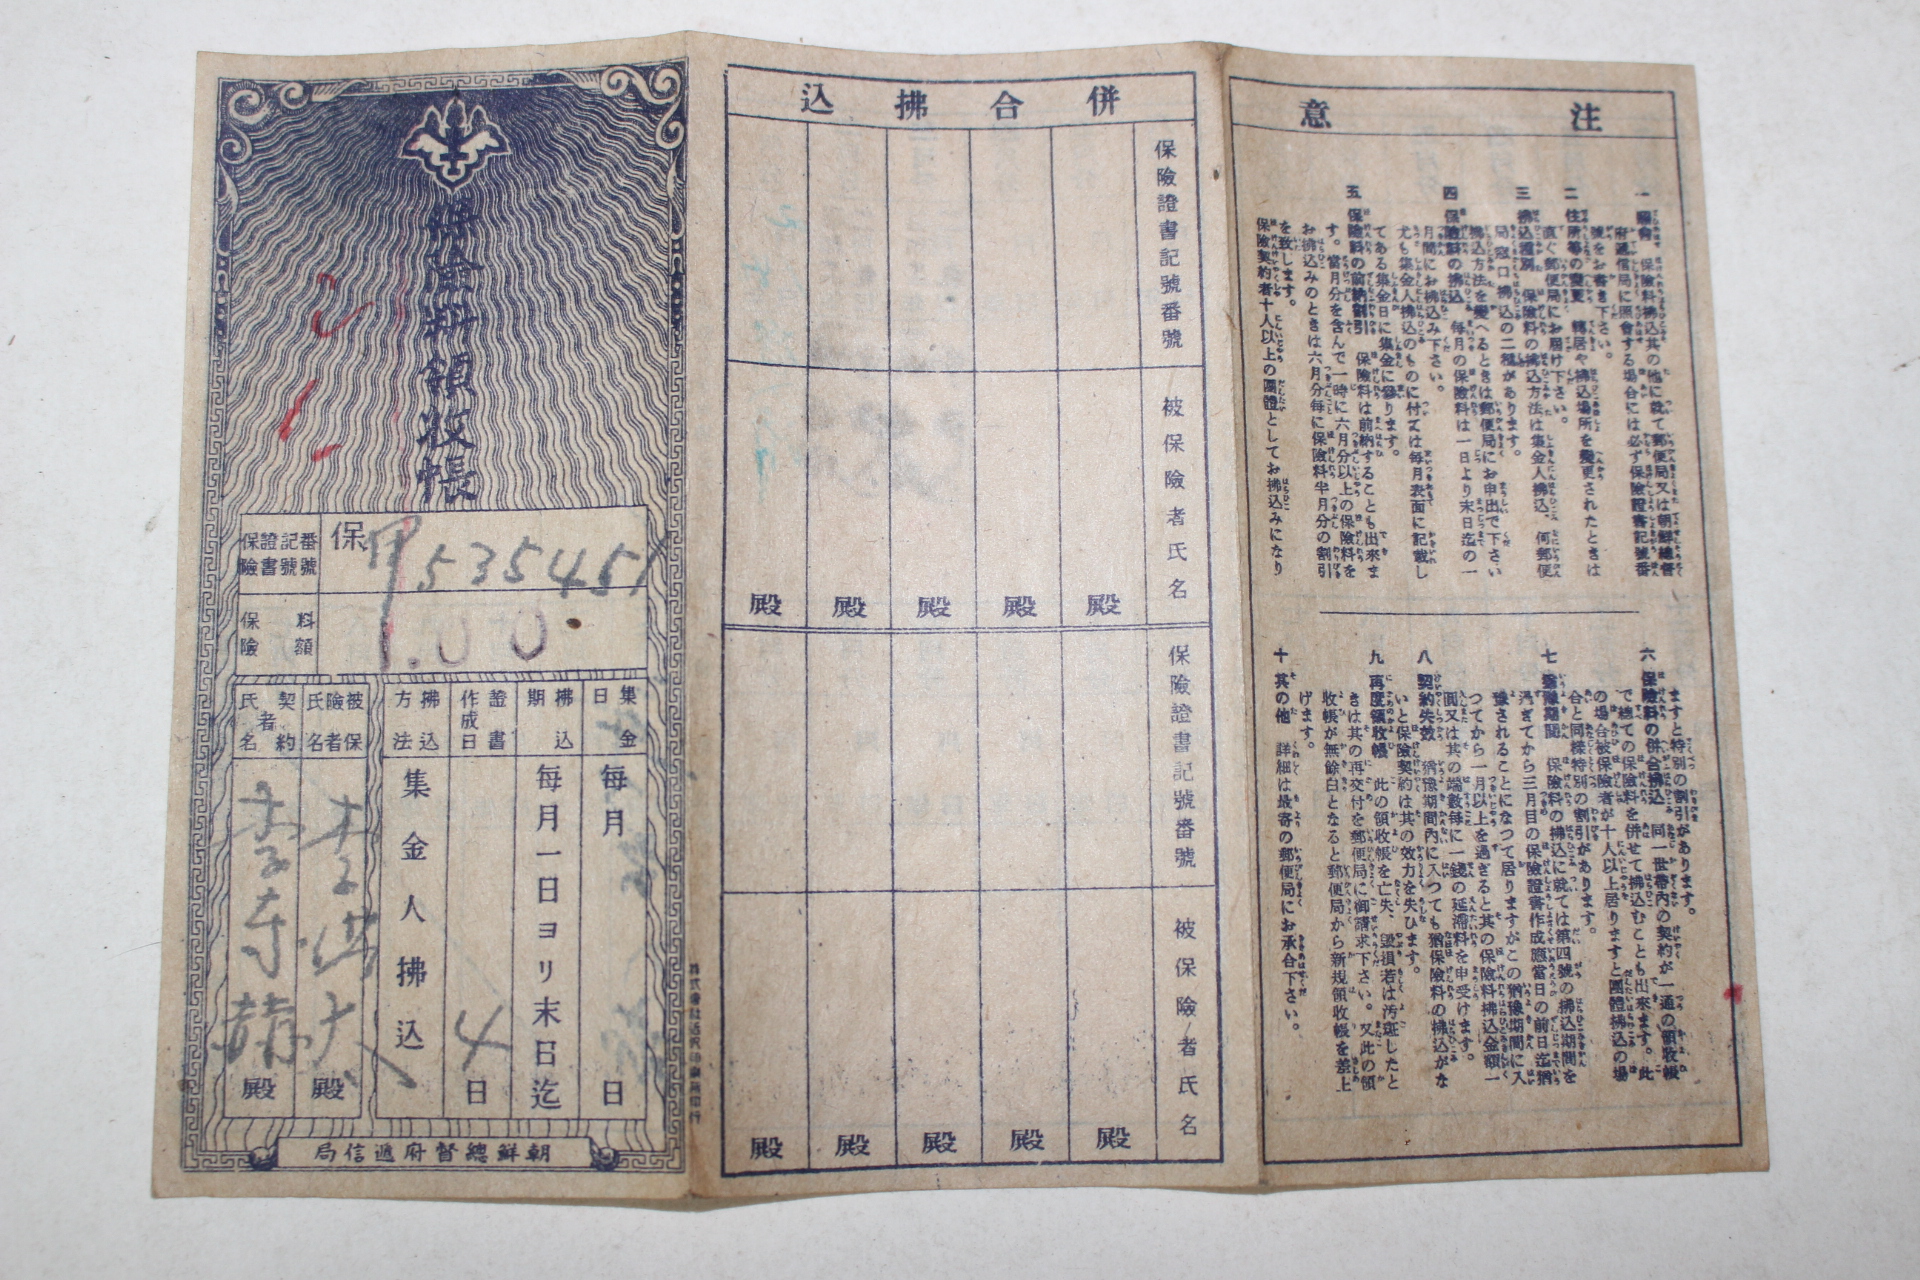 保險料領收帳
保險證書記號番號
保
甲 535451
保險料額
1.00
集金日
每月 日
拂込期
每月一日ヨリ末日迄
證書作成日
4日
拂込方法
集金人拂込
被保險者氏名
殿
契約者氏名
殿
朝鮮總督府遞信局
併合拂込
保險證書記號番號
被保險者氏名
殿
殿
殿
殿
殿
保險證書記號番號
被保險者氏名
殿
殿
殿
殿
殿
注意
一 保險料拂込其の他に就て郵便局又は朝鮮總督
府遞信局に照會する場合には必ず保險證書記號番
號をお書き下さい。
二 住所等の變更 轉居や拂込場所を變更されたときは
直ぐ郵便局にお届け下さい。
三 拂込種別 保險料の拂込方法は集金人拂込、何郵便
局窓口拂込の二種があります。
拂込方法を變へるときは郵便局にお申出で下さい
四 保險料の拂込 每月の保險料は一日より末日迄の一
月間にお拂込み下さい。
尤も集金人拂込のものに付ては每月表面に記載し
てある集金日に集金に參ります。
五 保險料の前納割引 保險料は前納することも出來ま
す。當月分を含んで一時に六月分以上の保險料を
お拂込みのときは六月分每に保險料半月分の割引
を致します。
保險契約者十人以上の團體としてお拂込みになり
ますと特別の割引があります。
六 保險料の併合拂込 同一世帶內の契約が一通の領收帳
で總ての保險料を併せて拂込むことも出來ます。此
の場合被保險者が十人以上居りますと團體拂込の場
合と同樣特別の割引があります。
七 猶豫期間 保險料の拂込に就ては第四號の拂込期間を
過ぎてから三月目の保險證書作成應當日の前日迄猶
豫されることになつて居りますがこの猶豫期間に入
つてから一月以上を過ぎると其の保險料拂込金額一
圓又は其の端數每に一錢の延滯料を申受けます。
八 契約失效 猶豫期間內に入つても猶保險料の拂込がな
いと保險契約は其の效力を失ひます。
九 再度領收帳 此の領收帳を亡失、毀損若は汚斑したと
きは其の再交付を郵便局に御請求下さい。又此の領
收帳が無餘白となると郵便局から新規領收帳を差上
げます。
十 其の他 詳細は最寄の郵便局にお承合下さい。